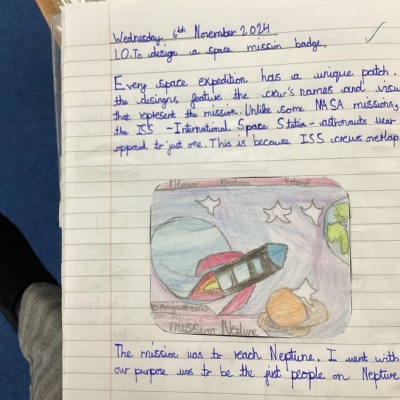 Wednesday 6th November 2024
L.O. To design a space mission badge.
Every space expedition has a unique patch.
the desisgns feature the crew's names and visu
that represent the mission. Unlike some NASA missions,
the ISS - International Space Station - astronauts wear
oppsed to just one. This is because ISS crews overlap
August 2025
mission Neptune
The mission was to reach Neptune. I went with
our purpose was to be the first people on Neptune